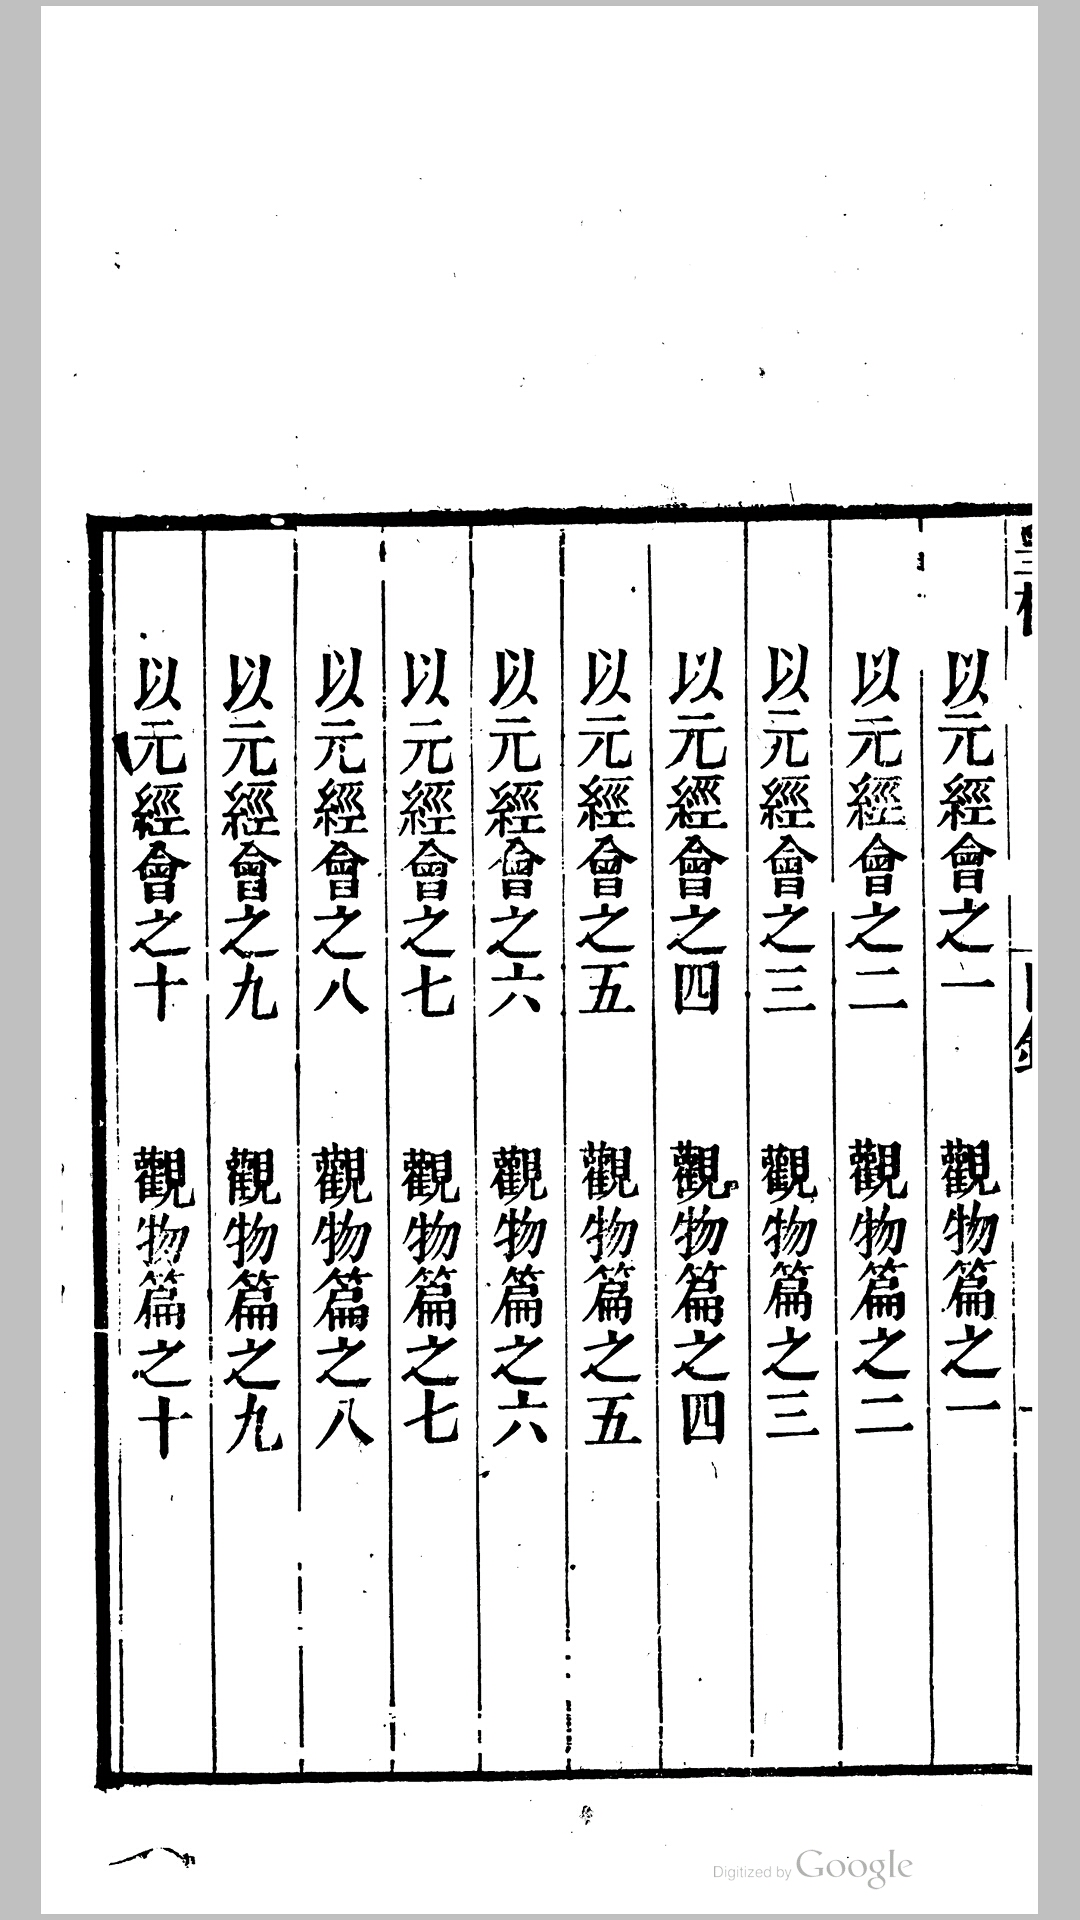 以元經會之一　觀物篇之一
以元經會之二　觀物篇之二
以元經會之三　觀物篇之三
以元經會之四　觀物篇之四
以元經會之五　觀物篇之五
以元經會之六　觀物篇之六
以元經會之七　觀物篇之七
以元經會之八　觀物篇之八
以元經會之九　觀物篇之九
以元經會之十　觀物篇之十
Digitized by Google